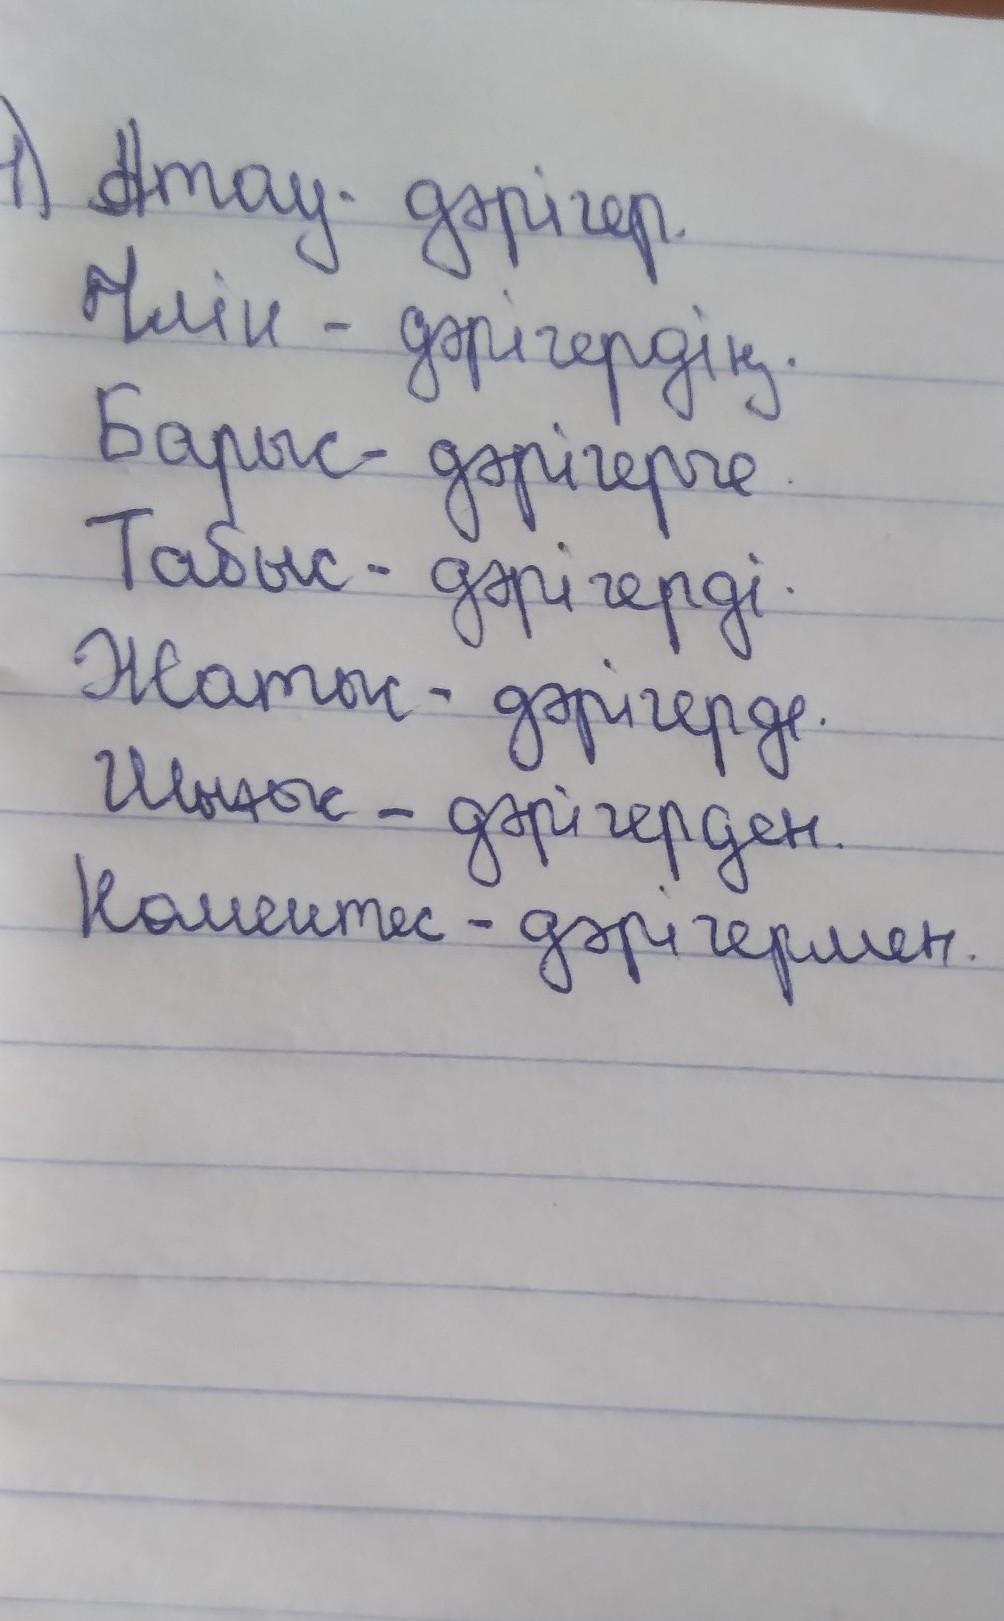 1) Атау - дәрігер.
Ілік - дәрігердің.
Барыс - дәрігерге.
Табыс - дәрігерді.
Жатыс - дәрігерде.
Шығыс - дәрігерден.
Комектес - дәрігермен.